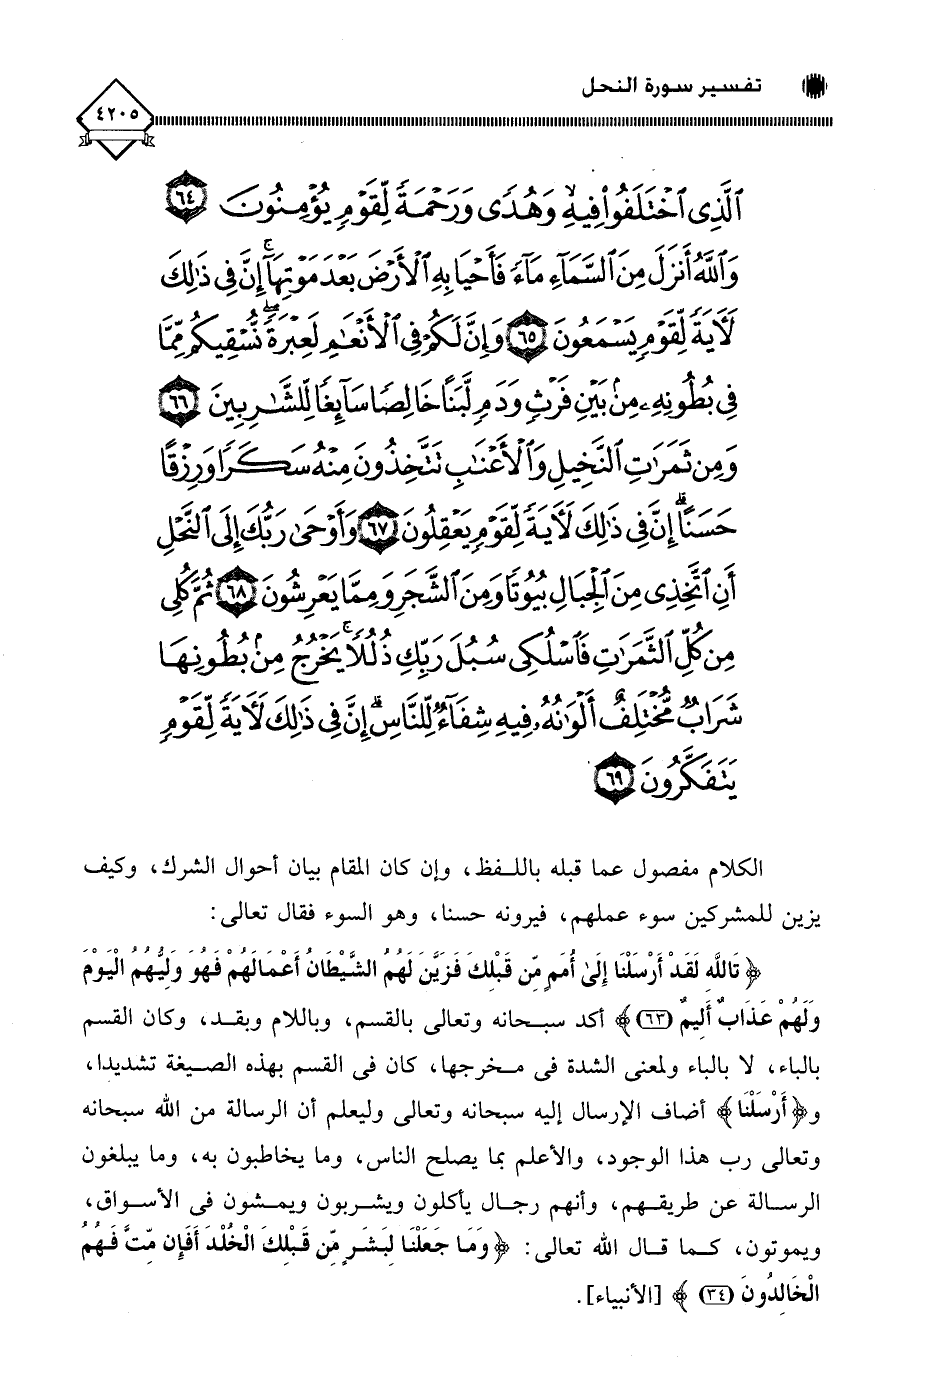 تفسير سورة النحل
٤٢٠٥
ٱلَّذِى ٱخْتَلَفُوا۟ فِيهِ ۙ وَهُدًى وَرَحْمَةً لِّقَوْمٍ يُؤْمِنُونَ ٦٤
وَٱللَّهُ أَنزَلَ مِنَ ٱلسَّمَآءِ مَآءً فَأَحْيَا بِهِ ٱلْأَرْضَ بَعْدَ مَوْتِهَآ ۚ إِنَّ فِى ذَٰلِكَ
لَـَٔايَةً لِّقَوْمٍ يَسْمَعُونَ ٦٥ وَإِنَّ لَكُمْ فِى ٱلْأَنْعَٰمِ لَعِبْرَةً ۖ نُّسْقِيكُم مِّمَّا
فِى بُطُونِهِۦ مِنۢ بَيْنِ فَرْثٍ وَدَمٍ لَّبَنًا خَالِصًا سَآئِغًا لِّلشَّٰرِبِينَ ٦٦
وَمِن ثَمَرَٰتِ ٱلنَّخِيلِ وَٱلْأَعْنَٰبِ تَتَّخِذُونَ مِنْهُ سَكَرًا وَرِزْقًا
حَسَنًا ۗ إِنَّ فِى ذَٰلِكَ لَـَٔايَةً لِّقَوْمٍ يَعْقِلُونَ ٦٧ وَأَوْحَىٰ رَبُّكَ إِلَى ٱلنَّحْلِ
أَنِ ٱتَّخِذِى مِنَ ٱلْجِبَالِ بُيُوتًا وَمِنَ ٱلشَّجَرِ وَمِمَّا يَعْرِشُونَ ٦٨ ثُمَّ كُلِى
مِن كُلِّ ٱلثَّمَرَٰتِ فَٱسْلُكِى سُبُلَ رَبِّكِ ذُلُلًا ۚ يَخْرُجُ مِنۢ بُطُونِهَا
شَرَابٌ مُّخْتَلِفٌ أَلْوَٰنُهُۥ فِيهِ شِفَآءٌ لِّلنَّاسِ ۗ إِنَّ فِى ذَٰلِكَ لَـَٔايَةً لِّقَوْمٍ
يَتَفَكَّرُونَ ٦٩
الكلام مفصول عما قبله باللفظ، وإن كان المقام بيان أحوال الشرك، وكيف
يزين للمشركين سوء عملهم، فيرونه حسنا، وهو السوء فقال تعالى:
﴿ تَاللَّهِ لَقَدْ أَرْسَلْنَا إِلَىٰ أُمَمٍ مِّن قَبْلِكَ فَزَيَّنَ لَهُمُ الشَّيْطَانُ أَعْمَالَهُمْ فَهُوَ وَلِيُّهُمُ الْيَوْمَ
وَلَهُمْ عَذَابٌ أَلِيمٌ (٦٣) ﴾ أكد سبحانه وتعالى بالقسم، وباللام وبقد، وكان القسم
بالباء، لا بالباء ولمعنى الشدة فى مخرجها، كان فى القسم بهذه الصيغة تشديدا،
و﴿ أَرْسَلْنَا ﴾ أضاف الإرسال إليه سبحانه وتعالى وليعلم أن الرسالة من الله سبحانه
وتعالى رب هذا الوجود، والأعلم بما يصلح الناس، وما يخاطبون به، وما يبلغون
الرسالة عن طريقهم، وأنهم رجال يأكلون ويشربون ويمشون فى الأسواق،
ويموتون، كما قال الله تعالى: ﴿ وَمَا جَعَلْنَا لِبَشَرٍ مِّن قَبْلِكَ الْخُلْدَ أَفَإِن مِّتَّ فَهُمُ
الْخَالِدُونَ (٣٤) ﴾ [الأنبياء].